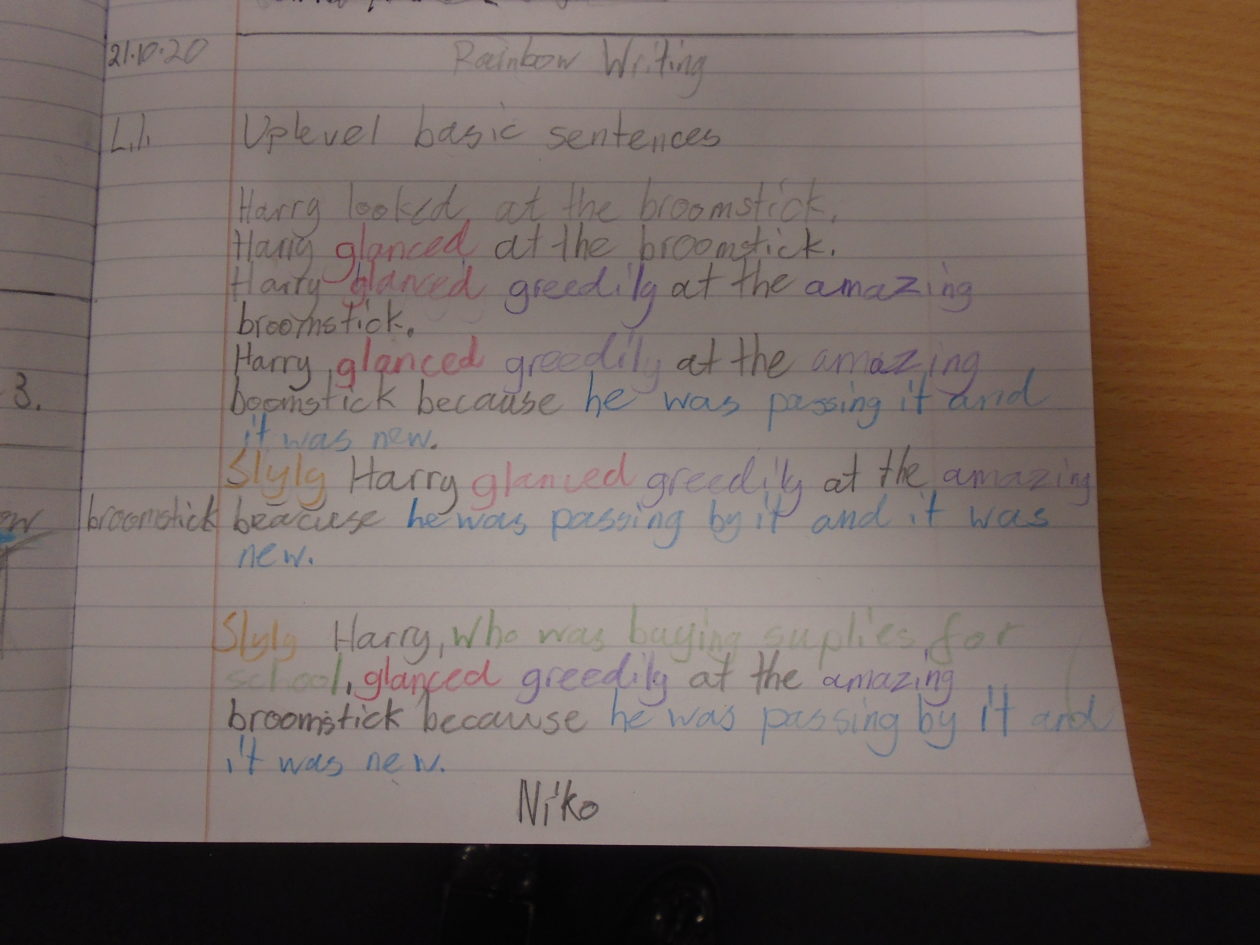 21.10.20 Rainbow Writing
L.I. Uplevel basic sentences
Harry looked at the broomstick.
Harry glanced at the broomstick.
Harry glanced greedily at the amazing
broomstick.
Harry glanced greedily at the amazing
3. boomstick because he was passing it and
it was new.
Slyly Harry glanced greedily at the amazing
broomstick beacuse he was passing by it and it was
new.
Slyly Harry, who was buying suplies for
school, glanced greedily at the amazing
broomstick because he was passing by it and
it was new.
Niko